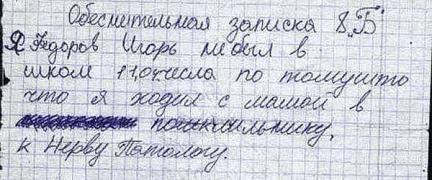 Обеснительная записка 8„Б"
Я Федоров Игорь не был в
школе 11,0 числа по томушто
что я ходил с мамой в
к Нерву Потологу.